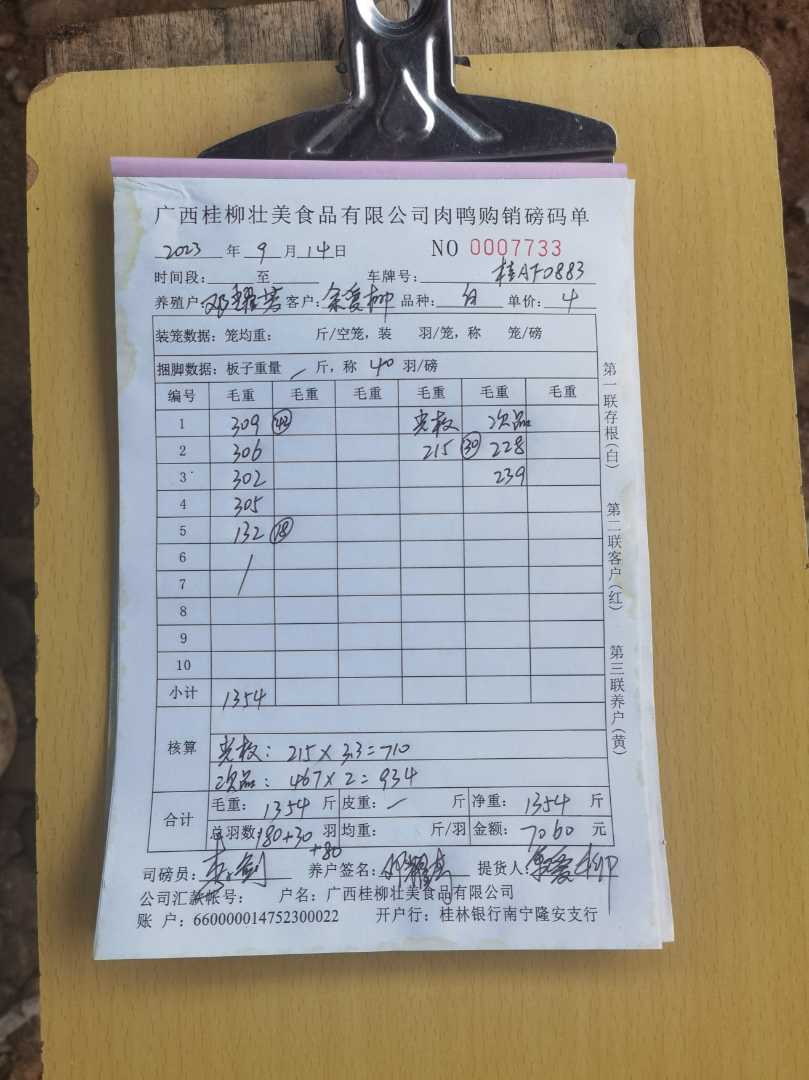 广西桂柳壮美食品有限公司肉鸭购销磅码单
2023 年 9 月 14 日 NO 0007733
时间段: 至 车牌号: 桂AF0883
养殖户: 邓耀 客户: 余爱柳 品种: 白 单价: 4
装笼数据: 笼均重: 斤/空笼, 装 羽/笼, 称 笼/磅
捆脚数据: 板子重量 / 斤, 称 40 羽/磅
编号 毛重 毛重 毛重 毛重 毛重 毛重
1 309 42 光板 次品
2 306 215 30 228
3 302 239
4 305
5 132 18
6 /
7
8
9
10
小计 1354
核算 光板: 215×3.3=710
次品: 467×2=934
合计 毛重: 1354 斤 皮重: / 斤 净重: 1354 斤
总羽数: 180+30 羽 均重: 斤/羽 金额: 7060 元
+80
司磅员: 养户签名: 邓耀 提货人: 余爱柳
公司汇款帐号: 户名: 广西桂柳壮美食品有限公司
账 户: 660000014752300022 开户行: 桂林银行南宁隆安支行
第一联存根(白)
第二联客户(红)
第三联养户(黄)